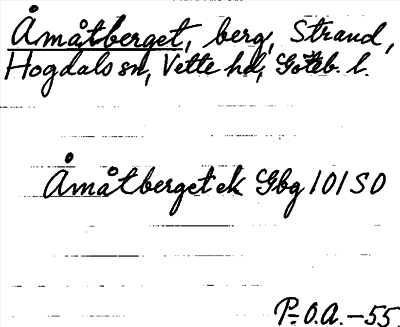 Åmåtberget, berg, Strand,
Hogdals sn, Vette hd, Göteb. l.
Åmåtberget ek Gbg 101 SO
P.O.A.-55